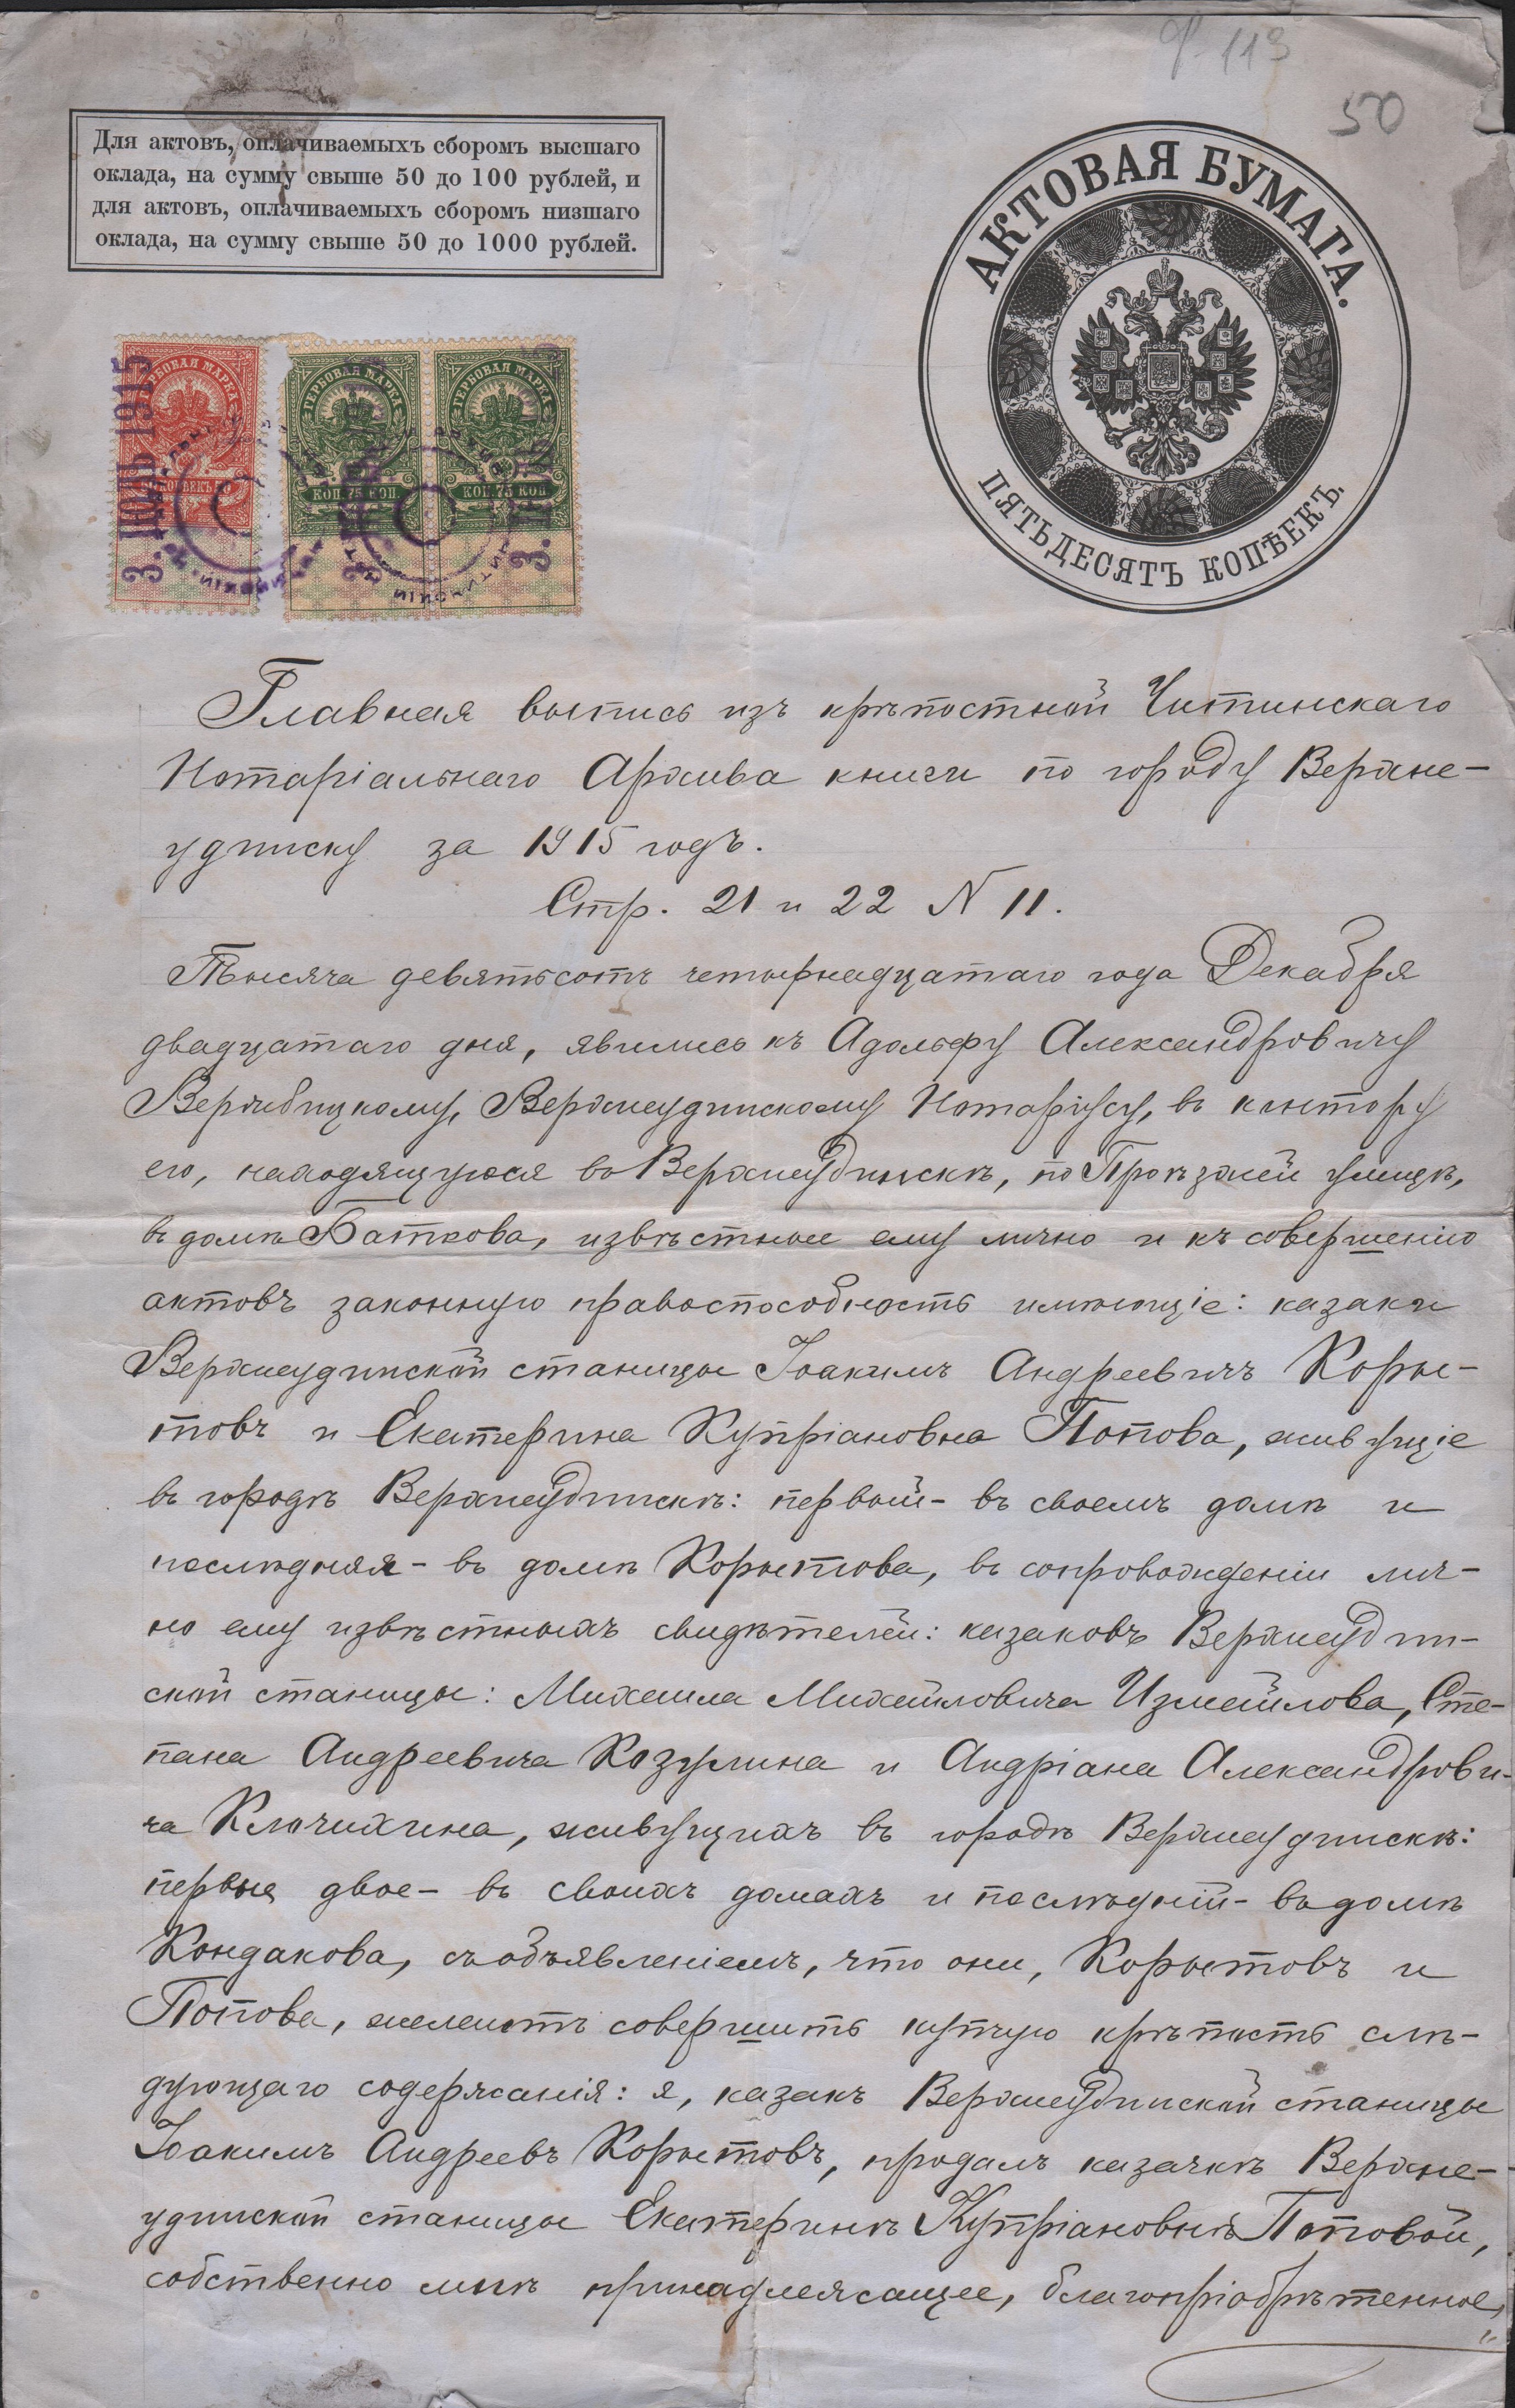 ф. 113
50
Для актовъ, оплачиваемыхъ сборомъ высшаго
оклада, на сумму свыше 50 до 100 рублей, и
для актовъ, оплачиваемыхъ сборомъ низшаго
оклада, на сумму свыше 50 до 1000 рублей.
АКТОВАЯ БУМАГА.
ПЯТЬДЕСЯТЪ КОПѢЕКЪ.
ГЕРБОВАЯ МАРКА
ГЕРБОВАЯ МАРКА
ГЕРБОВАЯ МАРКА
КОП. 75 КОП.
КОП. 75 КОП.
3. ІЮЛЬ 1915
Главная выпись изъ крѣпостной Читинскаго
Нотаріальнаго Архива книги по городу Верхне-
удинску за 1915 годъ.
Стр. 21 и 22 N 11.
Тысяча девятьсотъ четырнадцатаго года Декабря
двадцатаго дня, явились къ Адольфу Александровичу
Вержбицкому, Верхнеудинскому Нотаріусу, въ контору
его, находящуюся въ Верхнеудинскѣ, по Проѣзжей улицѣ,
въ домѣ Баткова, извѣстные ему лично и къ совершенію
актовъ законную правоспособность имѣющіе: казаки
Верхнеудинской станицы Іоакимъ Андреевичъ Коры-
товъ и Екатерина Купріановна Попова, живущіе
въ городѣ Верхнеудинскѣ: первый- въ своемъ домѣ и
послѣдняя- въ домѣ Корытова, въ сопровожденіи лич-
но ему извѣстныхъ свидѣтелей: казаковъ Верхнеудин-
ской станицы: Михаила Михайловича Измайлова, Сте-
пана Андреевича Козулина и Андріана Александрови-
ча Ключихина, живущихъ въ городѣ Верхнеудинскѣ:
первые двое- въ своихъ домахъ и послѣдній- въ домѣ
Кондакова, съ объявленіемъ, что они, Корытовъ и
Попова, желаютъ совершить купчую крѣпость слѣ-
дующаго содержанія: я, казакъ Верхнеудинской станицы
Іоакимъ Андреевъ Корытовъ, продалъ казачкѣ Верхне-
удинской станицы Екатеринѣ Купріановнѣ Поповой,
собственно мнѣ принадлежащее, благопріобрѣтенное,